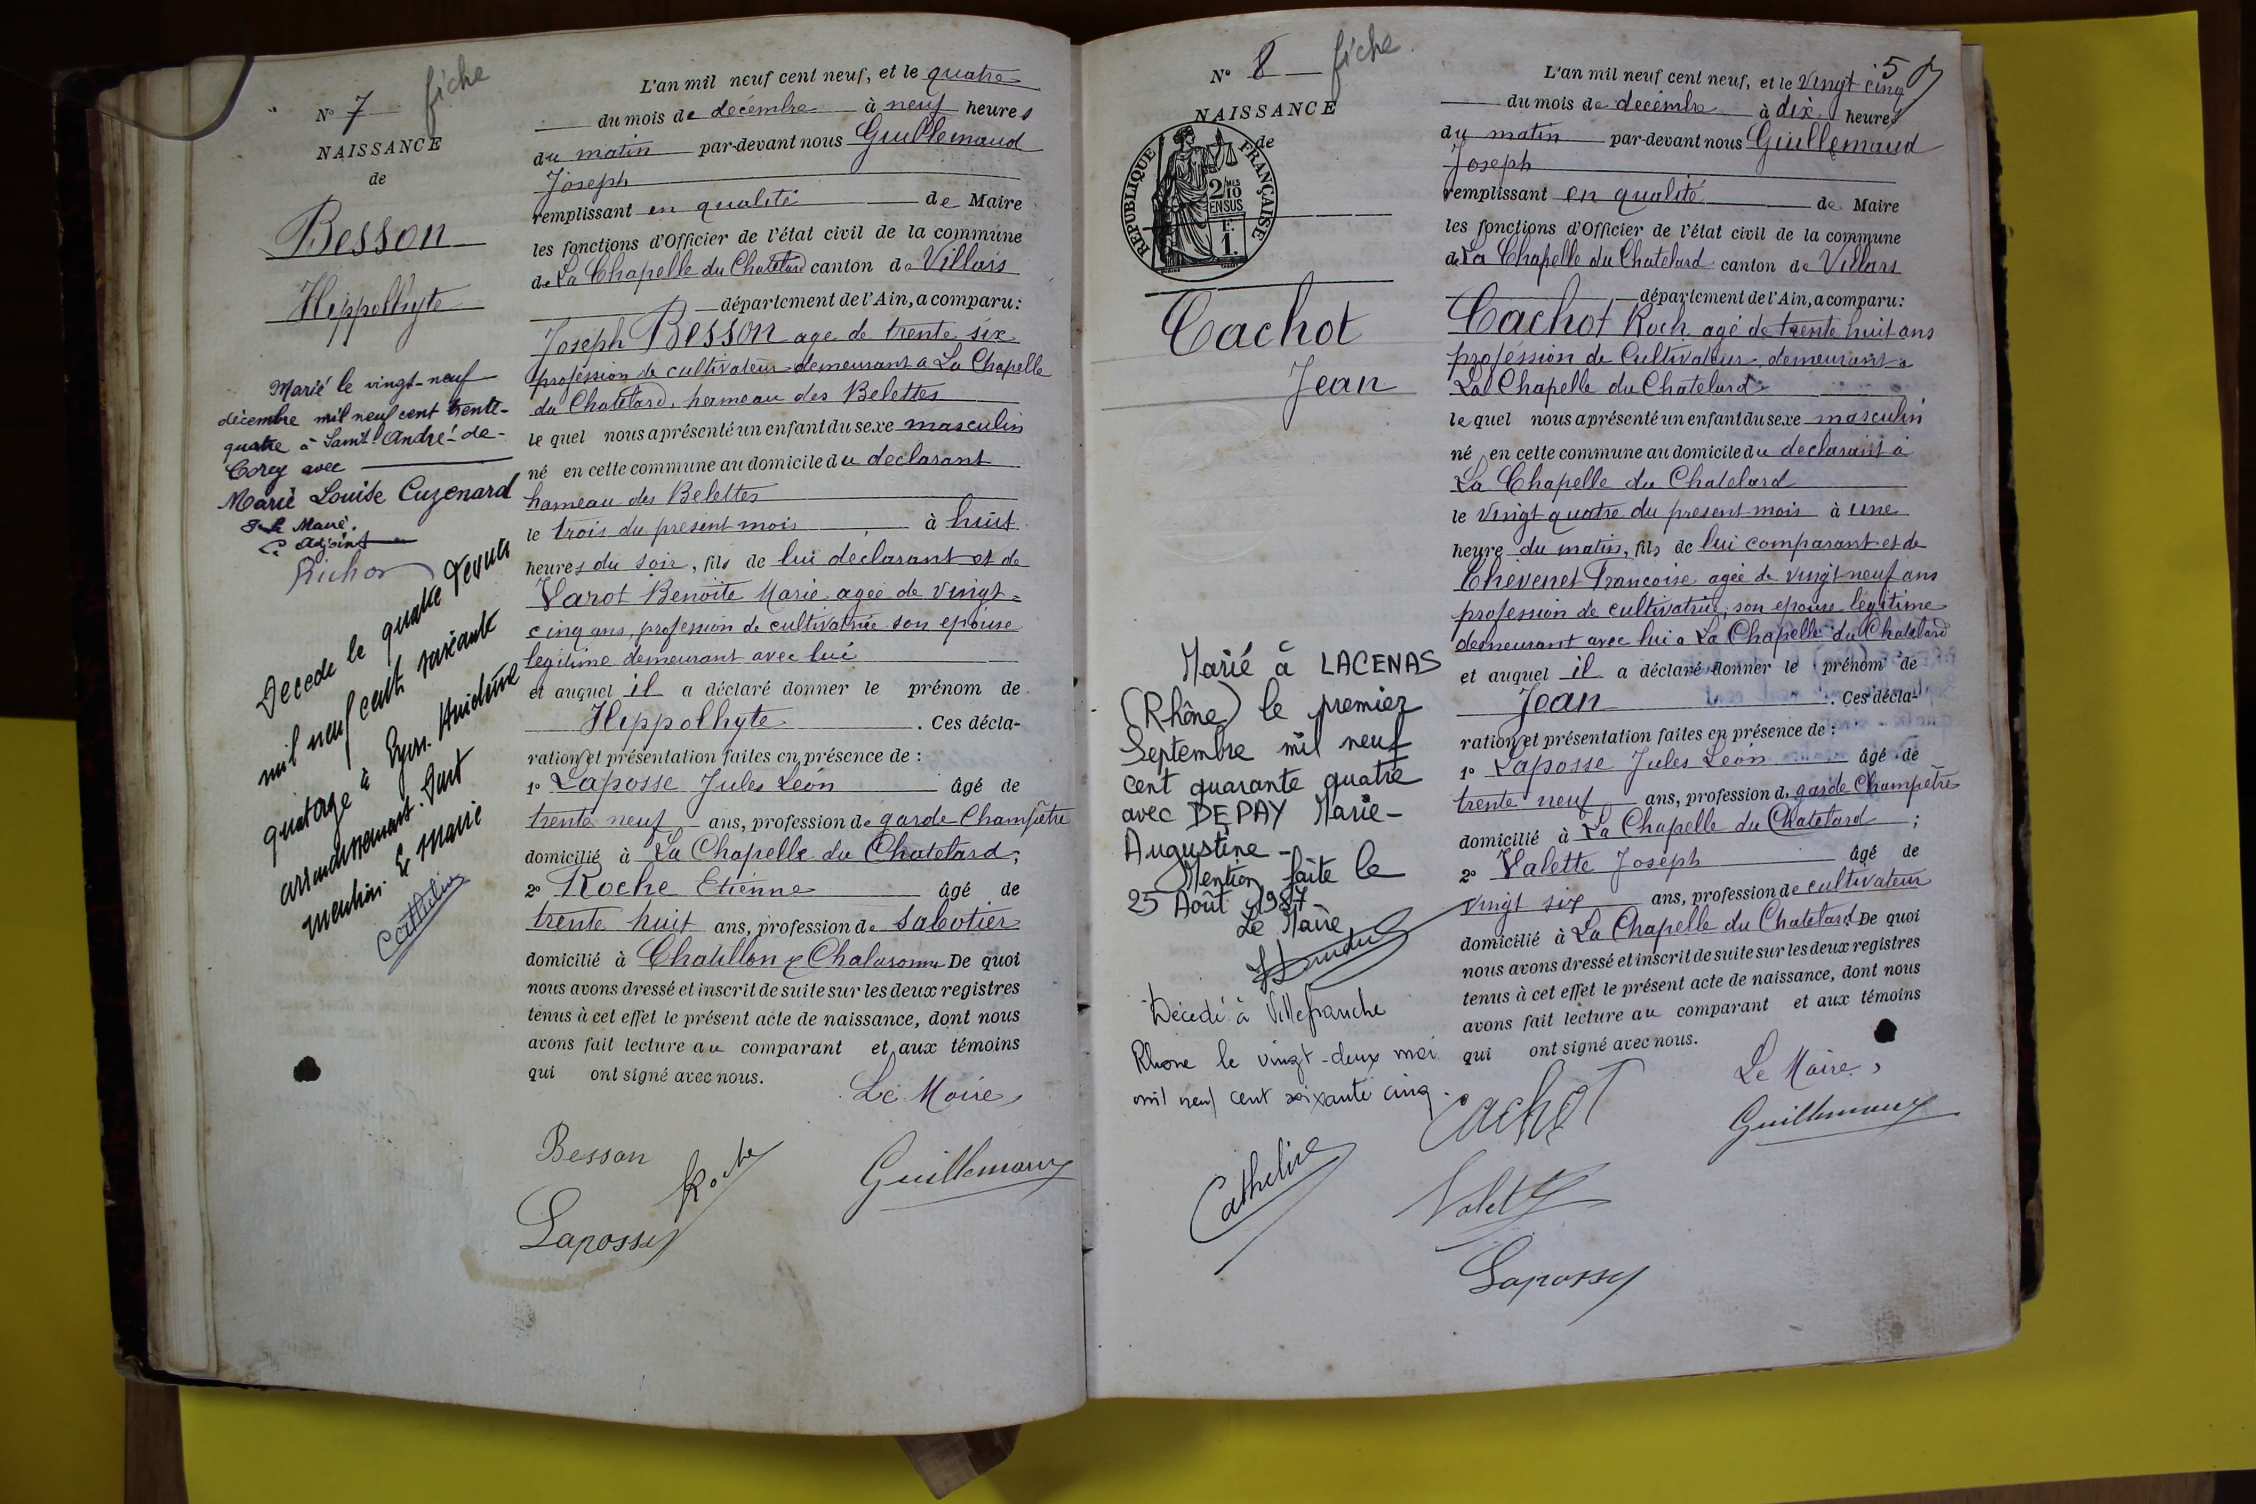 N° 7 fiche
NAISSANCE
de
Besson
Hippolhyte
Marié le vingt-neuf
décembre mil neuf cent trente-
quatre à Saint-André-de-
Corcy avec
Marie Louise Cuzenard
Le Maire.
Adjoint
Décédé le quatre
mil neuf cent soixante
quatorze à Lyon. Huitième
arrondissement. Dont
mention. Le Maire
Cathelin
L'an mil neuf cent neuf, et le quatre
du mois de décembre à neuf heures
du matin par-devant nous Guillemaud
Joseph
remplissant en qualité de Maire
les fonctions d'Officier de l'état civil de la commune
de La Chapelle du Chatelard canton de Villars
département de l'Ain, a comparu:
Joseph Besson age de trente six
profession de cultivateur demeurant a La Chapelle
du Chatelard, hameau des Belettes
le quel nous a présenté un enfant du sexe masculin
né en cette commune au domicile du declarant
hameau des Belettes
le trois du present mois à huit
heures du soir, fils de lui déclarant et de
Varot Benoite Marie agée de vingt=
cinq ans, profession de cultivatrice son epouse
legitime demeurant avec lui
et auquel il a déclaré donner le prénom de
Hippolhyte. Ces décla-
ration et présentation faites en présence de :
1° Laposse Jules Léon âgé de
trente neuf ans, profession de garde Champêtre
domicilié à La Chapelle du Chatelard;
2° Roche Etienne âgé de
trente huit ans, profession de sabotier
domicilié à Chatillon s/ Chalaronne De quoi
nous avons dressé et inscrit de suite sur les deux registres
tenus à cet effet le présent acte de naissance, dont nous
avons fait lecture au comparant et aux témoins
qui ont signé avec nous.
Le Maire,
Besson Roche Guillemaud
Laposse
N° 8 fiche
NAISSANCE
de
REPUBLIQUE FRANÇAISE
2/10 MES
EN SUS
1F.
Cachot
Jean
Marié à LACENAS
(Rhône) le premier
Septembre mil neuf
cent quarante quatre
avec DEPAY Marie-
Augustine -
Mention faite le
25 Août 1987
Le Maire
Décédé à Villefranche
Rhone le vingt-deux mai
mil neuf cent soixante cinq.
Cathelin
5
L'an mil neuf cent neuf, et le vingt cinq
du mois de decembre à dix heures
du matin par-devant nous Guillemaud
Joseph
remplissant en qualité de Maire
les fonctions d'Officier de l'état civil de la commune
de La Chapelle du Chatelard canton de Villars
département de l'Ain, a comparu:
Cachot Roch agé de trente huit ans
profession de Cultivateur demeurant a
La Chapelle du Chatelard
le quel nous a présenté un enfant du sexe masculin
né en cette commune au domicile du declarant à
La Chapelle du Chatelard
le vingt quatre du present mois à une
heure du matin, fils de lui comparant et de
Chevenet Francoise agée de vingt neuf ans
profession de cultivatrice, son epouse légitime
demeurant avec lui a La Chapelle du Chatelard
et auquel il a déclaré donner le prénom de
Jean. Ces décla-
ration et présentation faites en présence de :
1° Laposse Jules Léon âgé de
trente neuf ans, profession de garde Champêtre
domicilié à La Chapelle du Chatelard;
2° Valette Joseph âgé de
vingt six ans, profession de cultivateur
domicilié à La Chapelle du Chatelard De quoi
nous avons dressé et inscrit de suite sur les deux registres
tenus à cet effet le présent acte de naissance, dont nous
avons fait lecture au comparant et aux témoins
qui ont signé avec nous.
Le Maire,
Cachot Guillemaud
Valette
Laposse